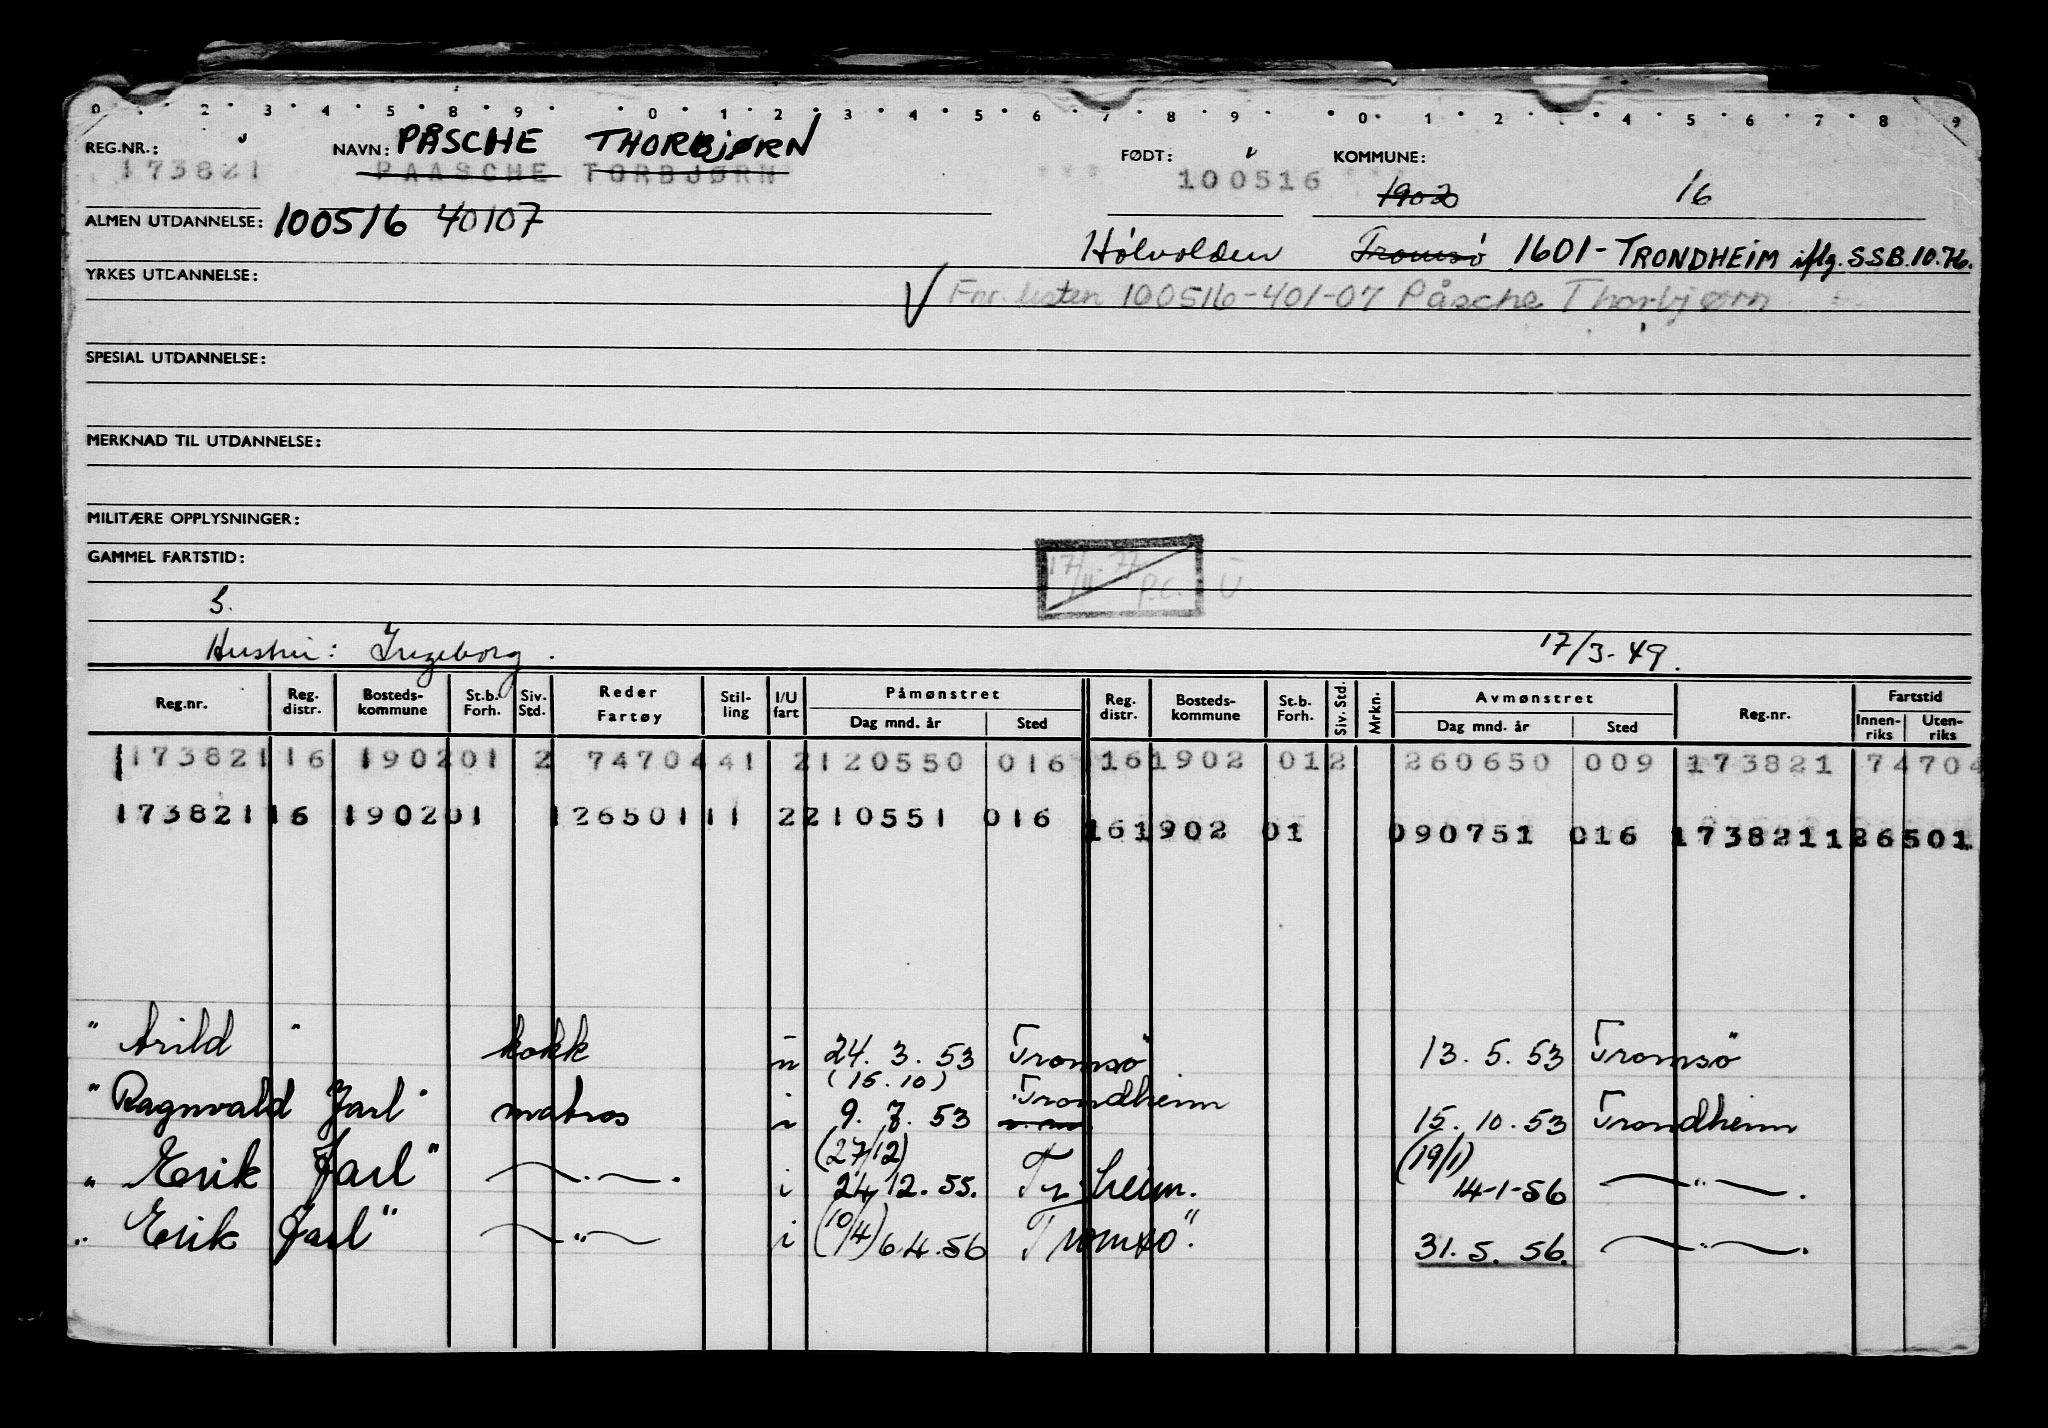 0 · · 2 · 3 · 4 · 5 · 8 · 9 · · 0 · 1 · 2 · 3 · 4 · 5 · 6 · 7 · 8 · 9 · · 0 · 1 · 2 · · 4 · 5 · 6 · 7 · 8 · 9
REG.NR.: NAVN: PÅSCHE THORBJØRN FØDT: KOMMUNE:
173821 PAASCHE TORBJØRN 100516 1902 16
ALMEN UTDANNELSE: 100516 40107
Hólvolden Tromsø 1601-TRONDHEIM iflg. SSB.10.76.
YRKES UTDANNELSE:
√ Fnr. listen 100516-401-07 Påsche Thorbjørn
SPESIAL UTDANNELSE:
MERKNAD TIL UTDANNELSE:
MILITÆRE OPPLYSNINGER:
GAMMEL FARTSTID:
17/11.77 P.C. U.
S.
Hustru: Ingeborg. 17/3-49.
Reg.nr. Reg. distr. Bosteds-kommune St.b. Forh. Siv. Std. Reder Fartøy Stil-ling I/U fart Påmønstret Dag mnd. år Sted Reg. distr. Bosteds-kommune St.b. Forh. Siv. Std. Mrkn. Avmønstret Dag mnd. år Sted Reg.nr. Fartstid Innen-riks Uten-riks
173821 16 1902 01 2 74704 41 2 120550 016 16 1902 01 2 260650 009 173821 74704
173821 16 1902 01 126501 11 2 210551 016 16 1902 01 090751 016 173821 126501
" Arild " kokk u 24. 3. 53 Tromsø 13. 5. 53 Tromsø
(15.10)
" Ragnvald Jarl " matros i 9. 7. 53 Trondheim 15. 10. 53 Trondheim
(27/12) (19/1)
" Erik Jarl " —"— . i 24, 12. 55. Tr.heim. 14-1-56 —"— .
" Erik Jarl " —"— i (10/4) 6.4.56 Tromsø. 31. 5. 56. —"— .